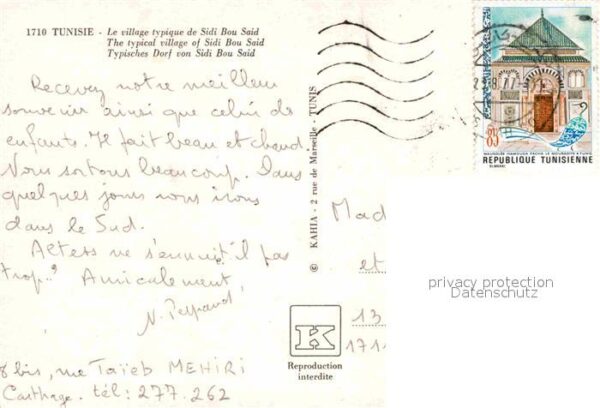 1710 TUNISIE - Le village typique de Sidi Bou Said
The typical village of Sidi Bou Said
Typisches Dorf von Sidi Bou Said
Recevez notre meilleur
souvenir ainsi que celui des
enfants. Il fait beau et chaud.
Nous sortons beaucoup. Dans
quelques jours nous irons
dans le Sud.
ne s'ennuit il pas
trop? Amicalement,
8 bis, rue Taïeb MEHIRI
Carthage. tél: 277.262
© KAHIA - 2 rue de Marseille - TUNIS
K
Reproduction
interdite
REPUBLIQUE TUNISIENNE
Mad
et
13
171
privacy protection
Datenschutz